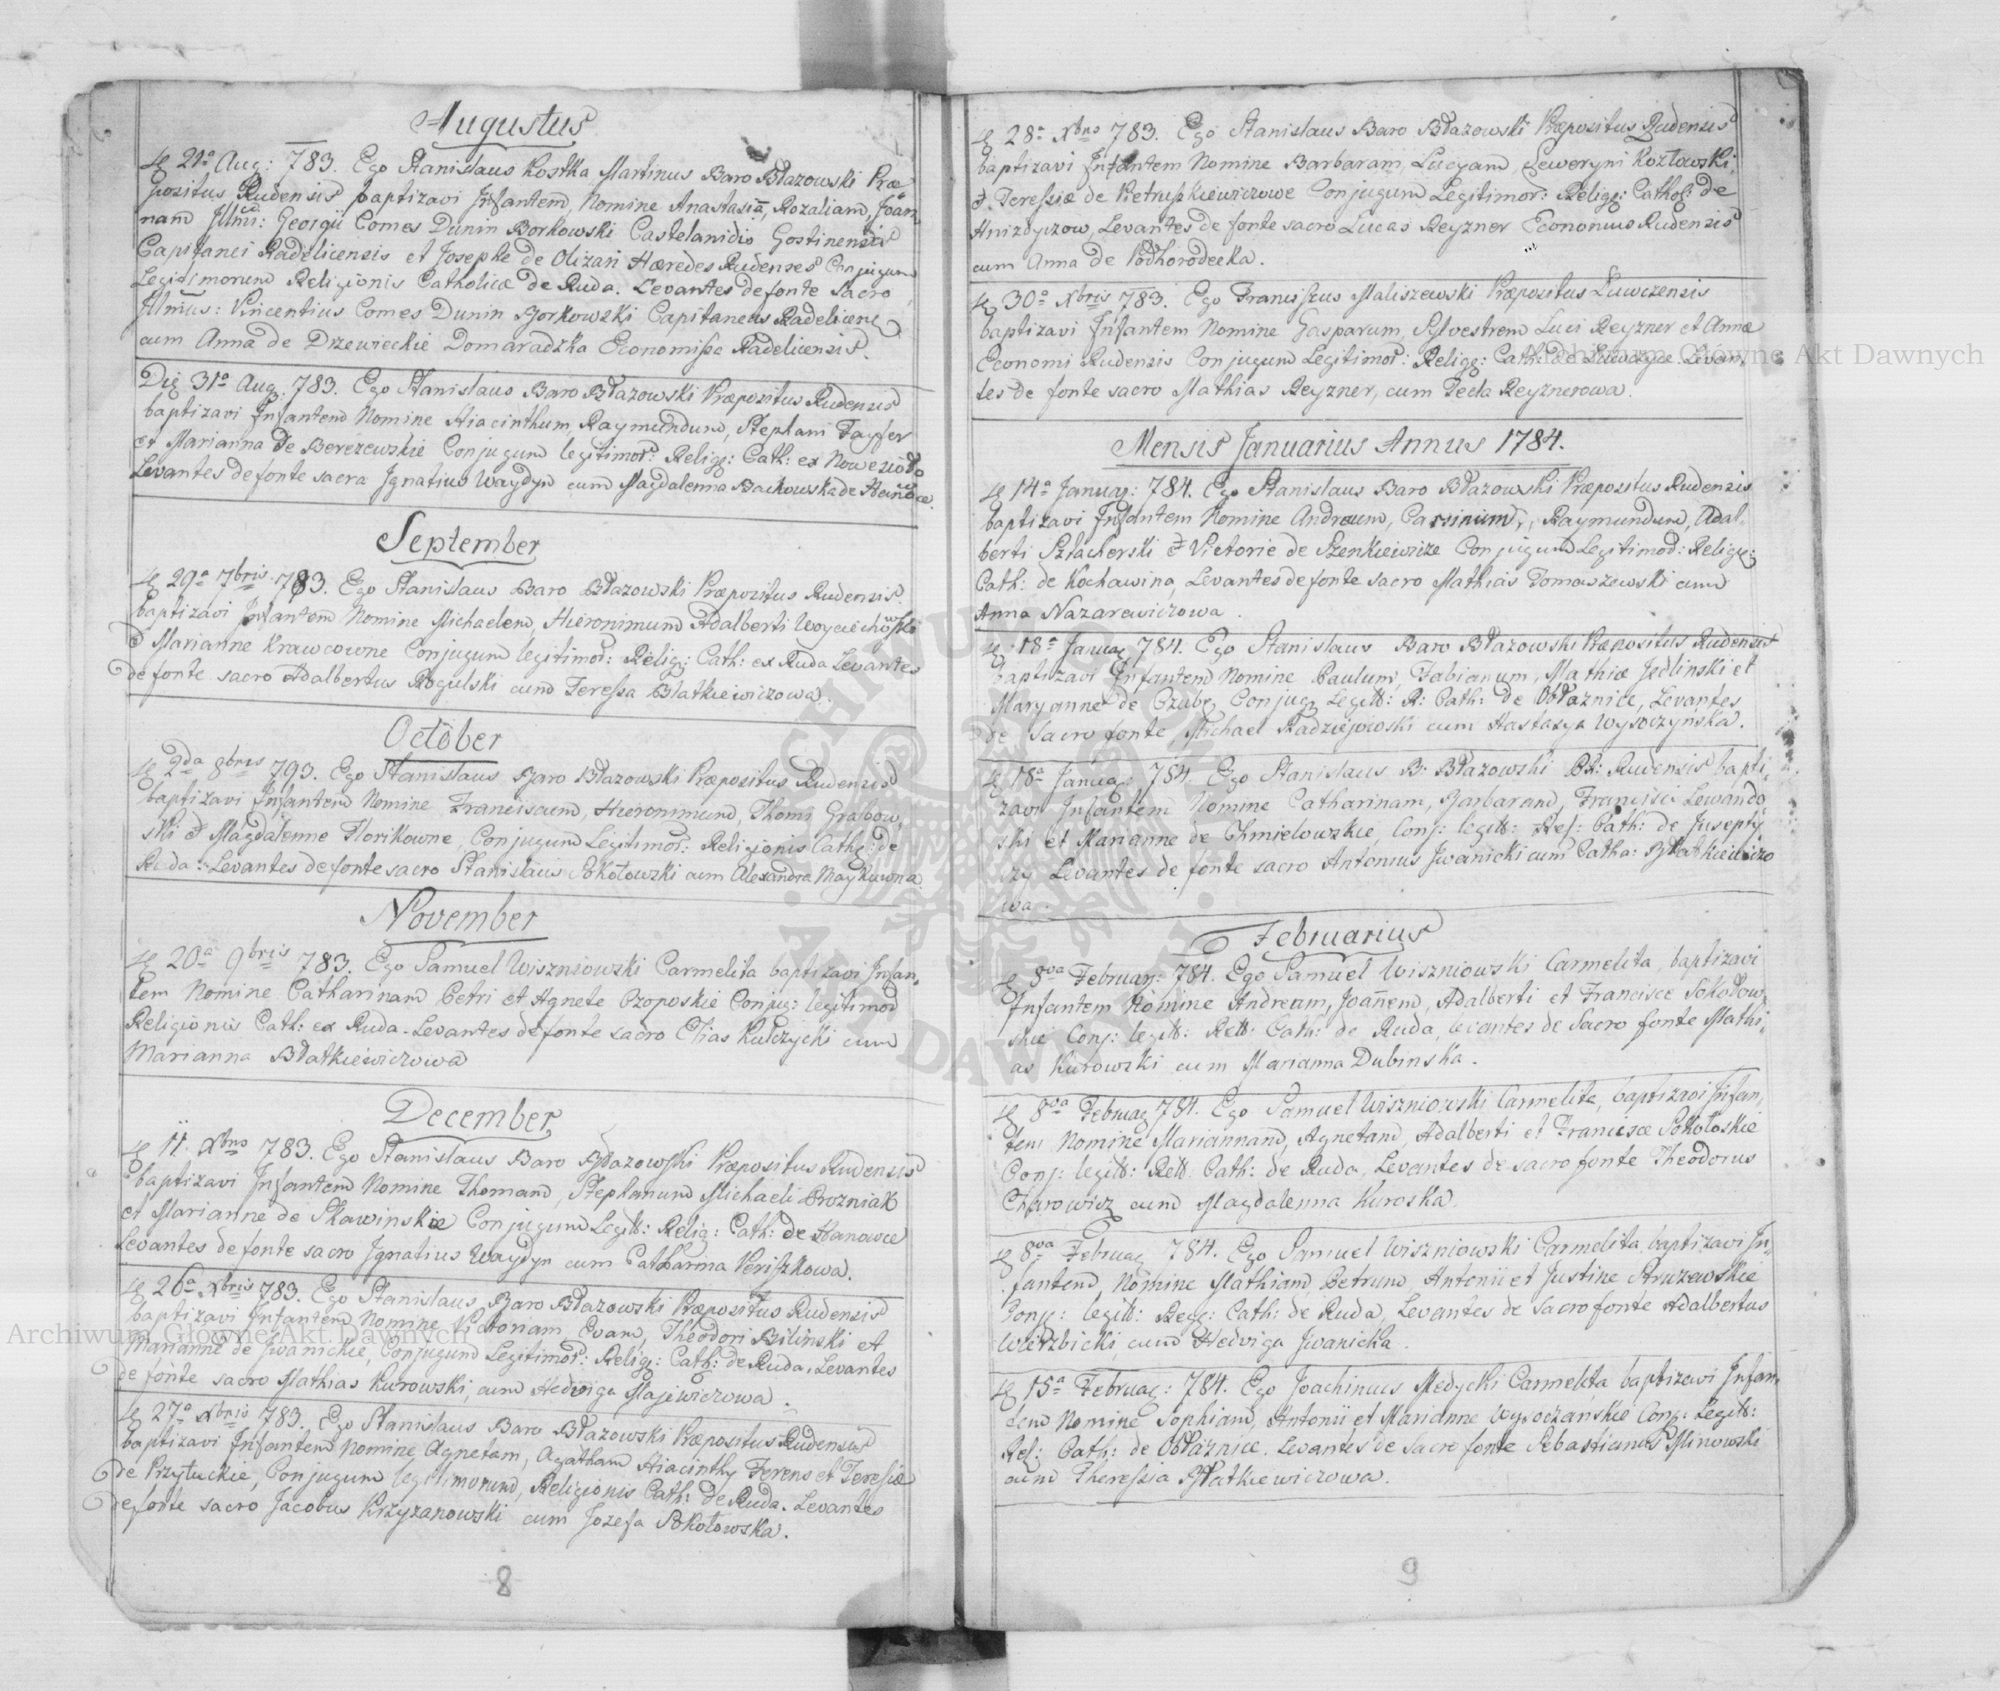 Augustus
21a Aug: 783. Ego Stanislaus Kostka Martinus Baro Błazowski Præ-
positus Rudensis baptizavi Infantem, Nomine Anastasiā, Rozaliam, Joan-
nam Illmi: Georgii Comes Dunin Borkowski Castelanidis Gostinensis
Capitanei Radelicensis et Josephe de Olizari Hæredes Rudenses Conjugum
Legitimorum Religionis Catholicæ de Ruda. Levantes de fonte Sacro
Illmus: Vincentius Comes Dunin Borkowski Capitaneus Radelicens
cum Anna de Drzewieckie Domaradzka Economissa Radelicensis.
Die 31a Aug: 783. Ego Stanislaus Baro Błazowski Præpositus Rudensis
baptizavi Infantem Nomine Hiacinthum, Raymundum, Stephani Fayfer
et Marianna de Berezewskie Conjugum legitimor: Relig: Cath: ex Nowesioło
Levantes de fonte sacra Ignatius Waydyn cum Magdalenna Backowska de Hanowce
September
29a 7bris 783. Ego Stanislaus Baro Błazowski Præpositus Rudensis
baptizavi Infantem Nomine Michaelem, Hieronimum Adalberti Woyciechowski
et Marianne Krawcowne Conjugum legitimor: Relig: Cath: ex Ruda Levantes
de fonte sacro Adalbertus Rogulski cum Teressa Błatkiewiczowa.
October
2da 8bris 793. Ego Stanislaus Baro Błazowski Præpositus Rudensis
baptizavi Infantem Nomine Franciscum, Hieronimum, Thomi Grabow,
ski et Magdalenne Florikowne, Conjugum Legitimor: Religionis Cath: de
Ruda: Levantes de fonte sacro Stanislaus Sokołowski cum Alexandra Maykuwna
November
20a 9bris 783. Ego Samuel Wiszniowski Carmelita baptizavi Infan-
tem Nomine Catharinam Petri et Agnete Czoposkie Conjug: legitimor
Religionis Cath: ex Ruda. Levantes de fonte sacro Elias Kulczycki cum
Marianna Błatkiewiczowa
December
11. Xbris 783. Ego Stanislaus Baro Błazowski Præpositus Rudensis
baptizavi Infantem Nomine Thomam, Stephanum Michaeli Prozniak
et Marianne de Sławinskie Conjugum Legitt: Relig: Cath: de Hanowce
Levantes de fonte sacro Ignatius Waydyn cum Catharina Periszkowa.
26a Xbris 783. Ego Stanislaus Baro Błazowski Præpositus Rudensis
baptizavi Infantem Nomine Victoriam Evam, Theodori Bilinski et
Marianne de Iwanickie, Conjugum Legitimor: Relig: Cath: de Ruda. Levantes
de fonte sacro Mathias Kurowski, cum Hedviga Majewiczowa.
27a Xbris 783. Ego Stanislaus Baro Błazowski Præpositus Rudensis
baptizavi Infantem Nomine Agnetam, Agatham Hiacinthy Ferens et Teressæ
de Przyłuckie, Conjugum legitimorum, Religionis Cath: de Ruda. Levantes
de fonte sacro Jacobus Krzyzanowski cum Jozefa Sokołowska.
8
28a Xbris 783. Ego Stanislaus Baro Błazowski Præpositus Rudensis
baptizavi Infantem Nomine Barbaram, Lucyam, Seweryni Kozłowski,
et Teressiæ de Pietruszkiewiczowe Conjugum Legitimor: Relig: Cathol: de
Hnizdyczow, Levantes de fonte sacro Lucas Reyzner Economus Rudensis
cum Anna de Podhorodecka.
30a Xbris 783. Ego Franciszus Maliszewski Præpositus Zuwczensis
baptizavi Infantem Nomine Gasparum, Sylvestrem Luci Reyzner et Annæ
Economi Rudensis Conjugum Legitimor: Relig: Cath: de Levan-
tes de fonte sacro Mathias Reyzner, cum Tecla Reyznerowa.
Mensis Januarius Annus 1784.
14a Januar: 784. Ego Stanislaus Baro Błazowski Præpositus Rudensis
baptizavi Infantem Nomine Andream, Raymundum, Adal-
berti Szlacherski et Victorie de Szenkiewicze Conjugum Legitimor: Relig:
Cath: de Kochawina, Levantes de fonte sacro Mathias Tomaszewski cum
Anna Nazarewiczowa.
18a Januar 784. Ego Stanislaus Baro Błazowski Præpositus Rudensis
baptizavi Infantem Nomine Paulum, Fabianum, Mathiæ Jedlinski et
Maryanne de Czube, Conjug Legitt: R: Cath: de Obłaznice, Levantes
de Sacro fonte, Michael Radziejowski cum Nastasya Wysoczynska.
18a Januar 784. Ego Stanislaus B: Błazowski Pr: Rudensis bapti-
zavi Infantem Nomine Catharinam, Barbaram, Francisci Lewando
ski et Marianne de Chmielowskie, Conj: legitt: Rel: Cath: de Jusepty
czy Levantes de fonte sacro Antonius Iwanicki cum Catha: Błatkiewiczo
wa.
Februarius
8va Februar: 784. Ego Samuel Wiszniowski Carmelita, baptizavi
Infantem Nomine Andream, Joannem, Adalberti et Francisce Sokołow-
skie Conj: legitt: Rell: Cath: de Ruda, levantes de Sacro fonte Mathi,
as Kurowski cum Marianna Dubinska.
8va Februar 784. Ego Samuel Wiszniowski Carmelita, baptizavi Infan,
tem Nomine Mariannam, Agnetam, Adalberti et Francisce Sokołoskie
Conj: legitt: Rell Cath: de Ruda, Levantes de sacro fonte Theodorus
Charowicz cum Magdalenna Kuroska.
8va Februar 784. Ego Samuel Wiszniowski Carmelita, baptizavi In-
fantem, Nomine Mathiam, Petrum Antonii et Justine Struzewskie
Conj: legitt: Relg: Cath: de Ruda, Levantes de Sacro fonte Adalbertus
Wierzbicki, cum Hedviga Iwanicka.
15a Februar: 784. Ego Joachimus Medycki Carmelita baptizavi Infan-
tem Nomine Sophiam, Antonii et Marianne Wysoczanskie Conj: Legitt:
Rel: Cath: de Obłaznice. Levantes de Sacro fonte Sebastianus Minowski
cum Theressia Błatkiewiczowa.
9
Archiwum Główne Akt Dawnych
Archiwum Główne Akt Dawnych
ARCHIWUM GŁÓWNE AKT DAWNYCH